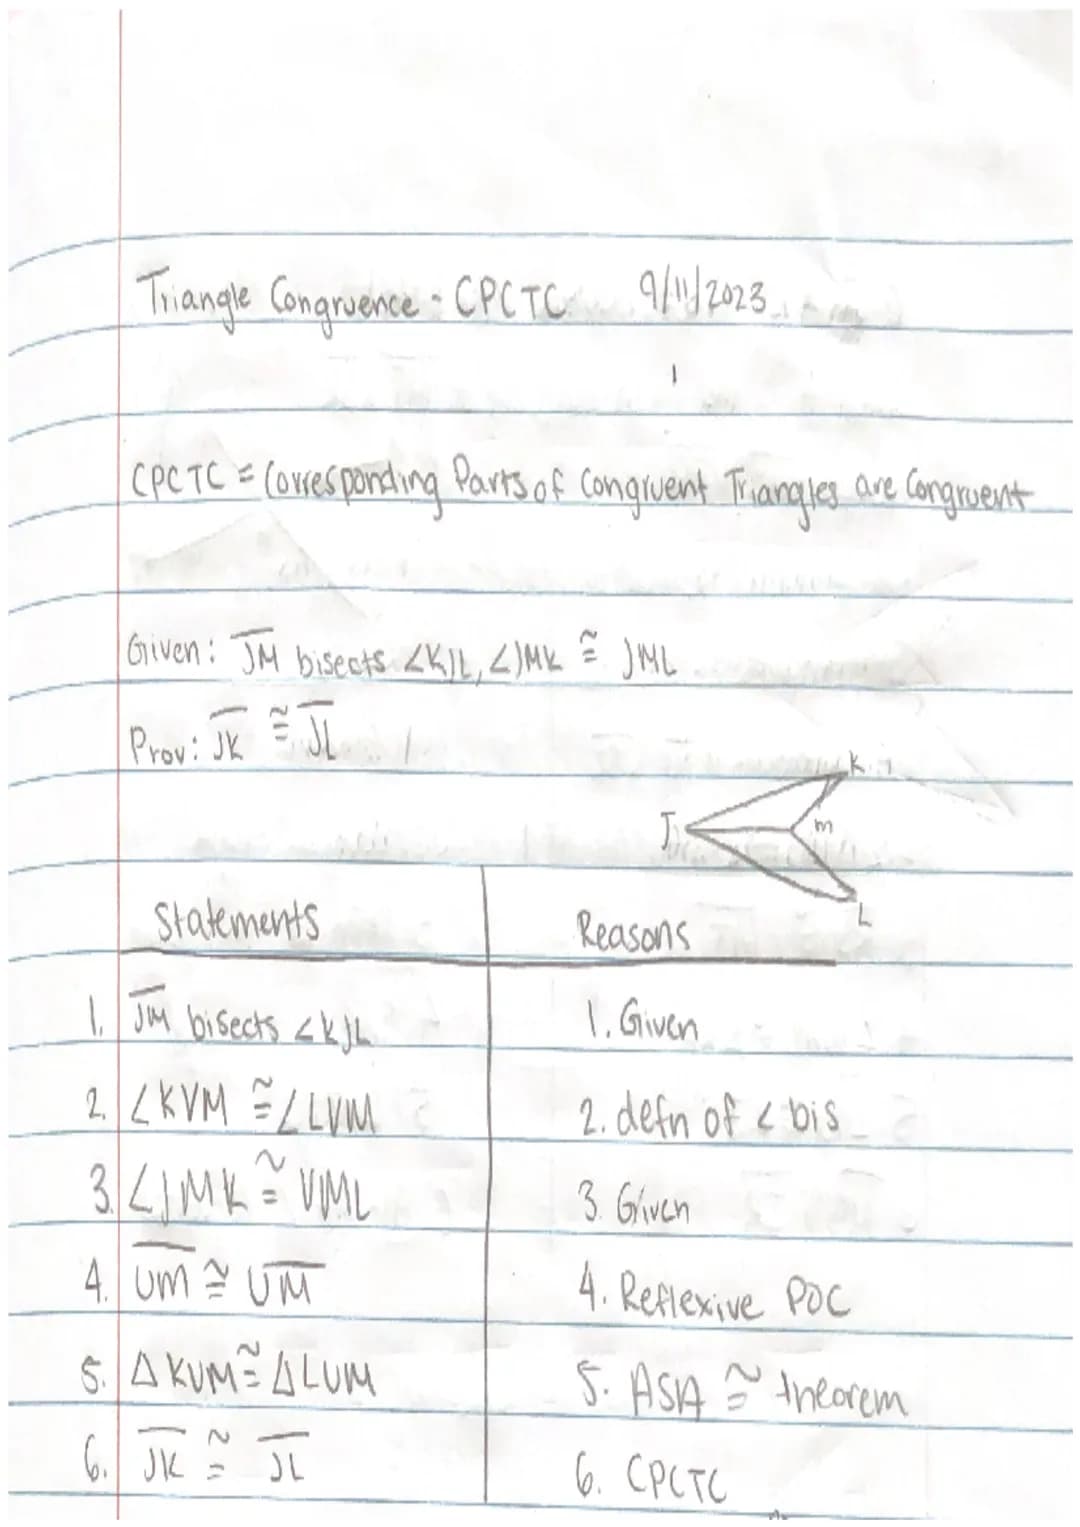 Triangle Congruence - CPCTC 9/11/2023
CPCTC = Corresponding Parts of Congruent Triangles are Congruent
Given: JM bisects ∠KJL, ∠JMK ≅ JML
Prov: JK ≅ JL
K
J
m
L
Statements Reasons
1. JM bisects ∠KJL 1. Given
2. ∠KVM ≅ ∠LVM 2. defn of ∠ bis
3. ∠JMK ≅ VML 3. Given
4. UM ≅ UM 4. Reflexive POC
5. △KUM ≅ △LUM 5. ASA ≅ theorem
6. JK ≅ JL 6. CPCTC